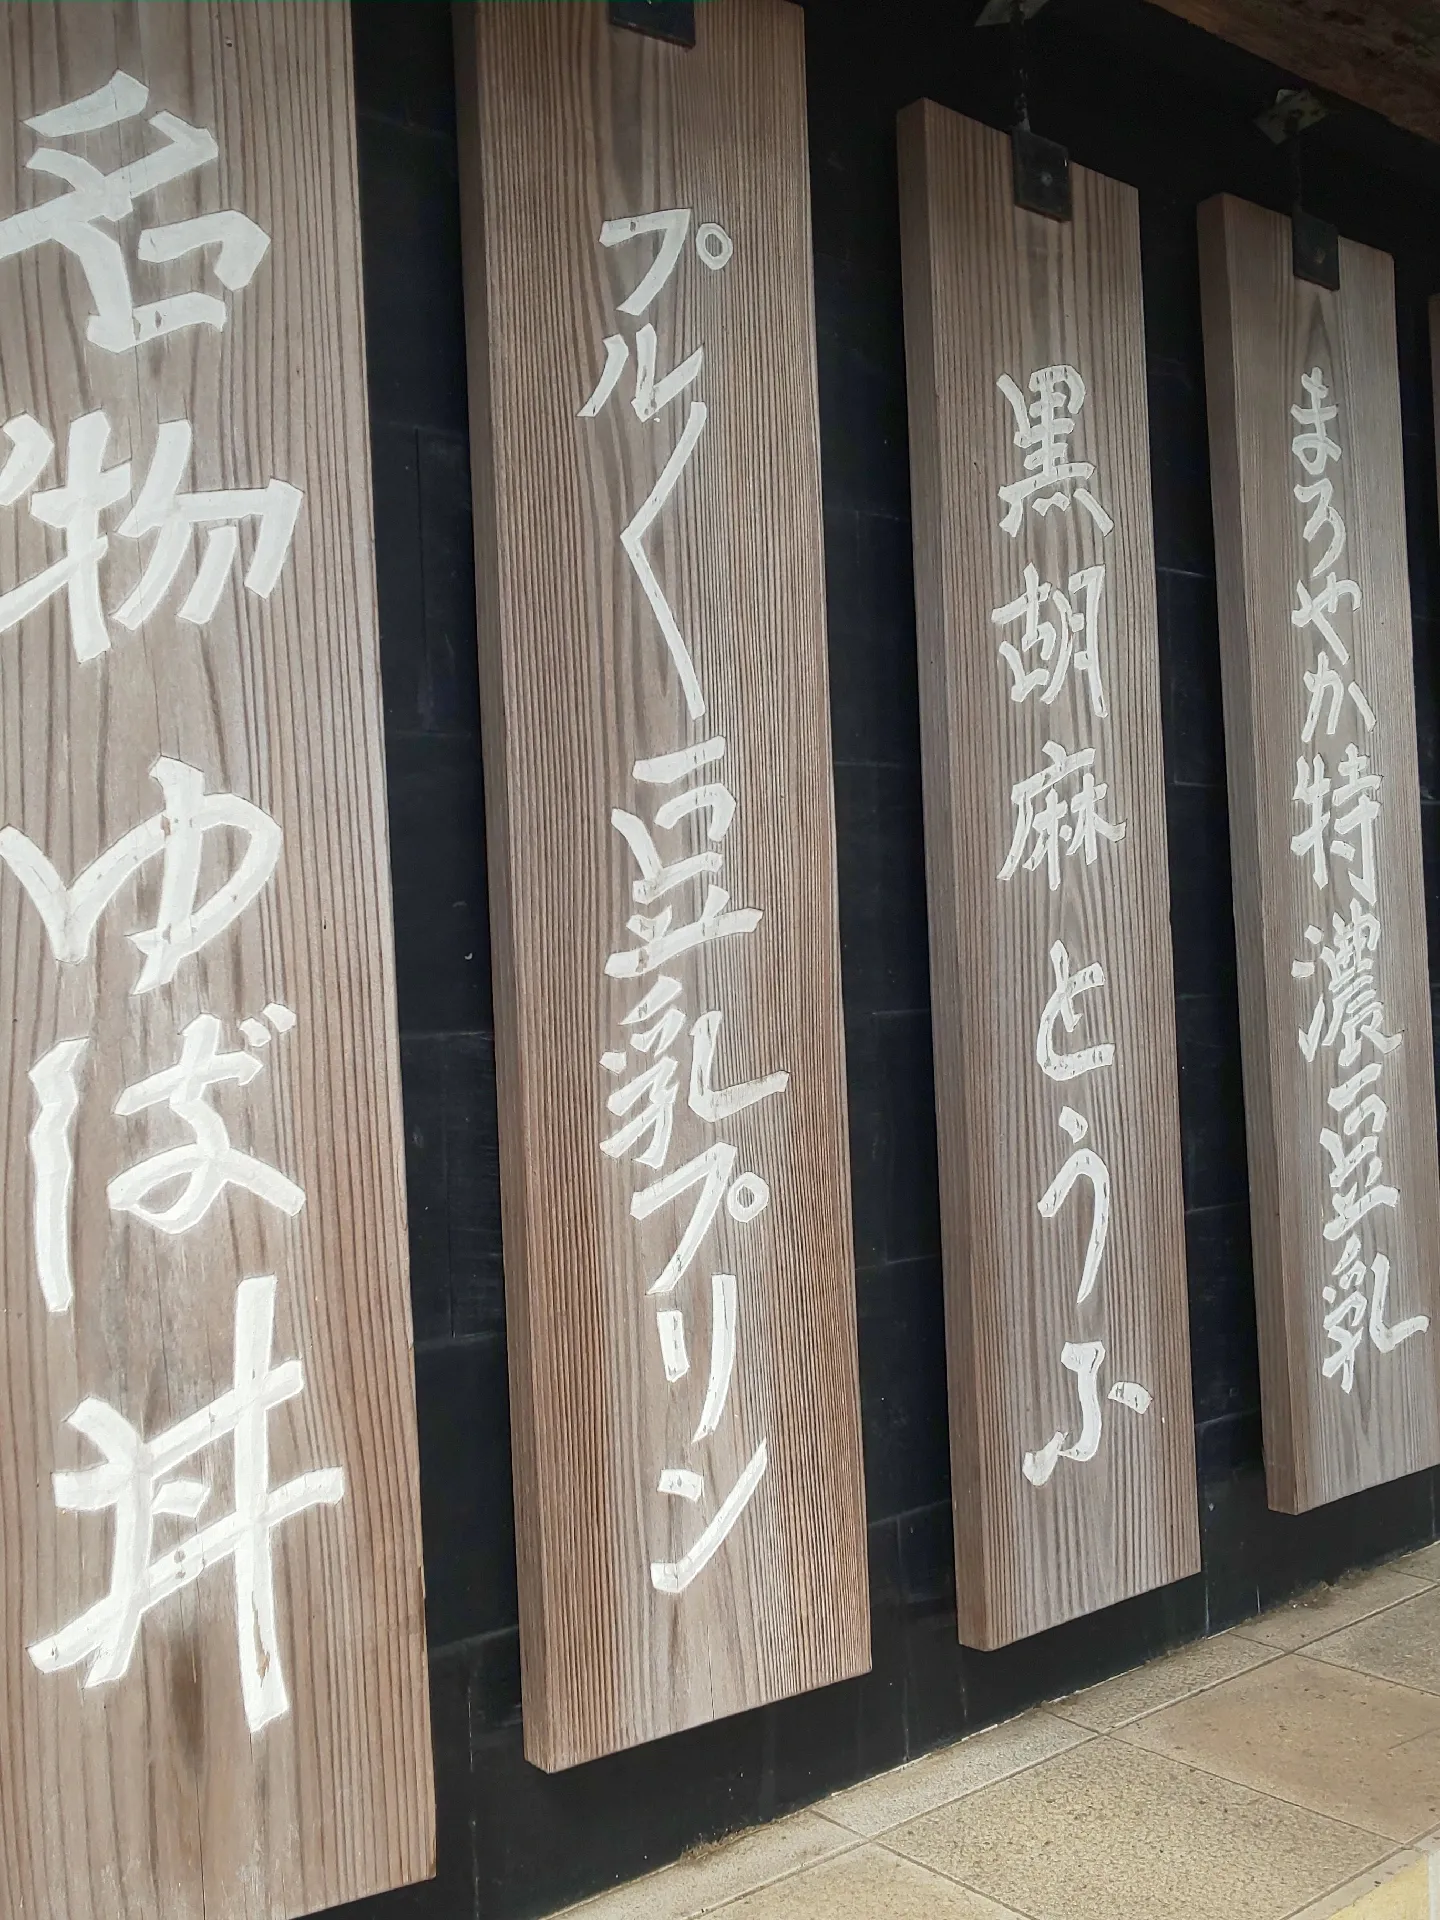 まろやか特濃豆乳
黒胡麻とうふ
プル〱豆乳プリン
名物ゆば丼